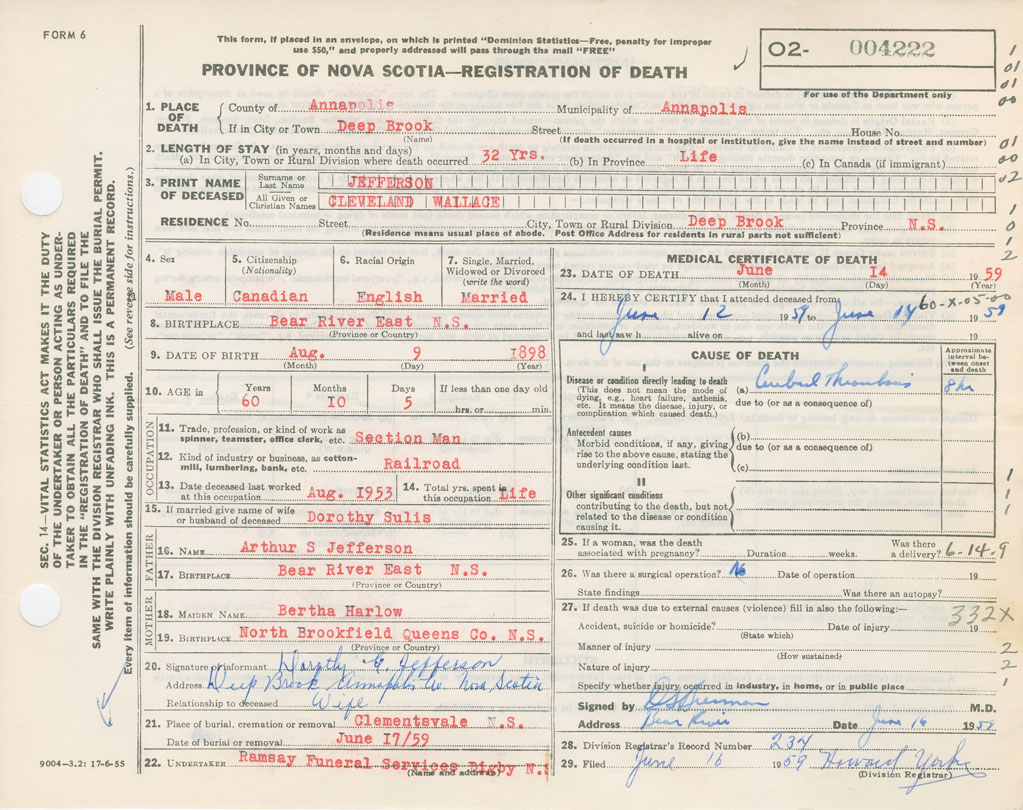 FORM 6
This form, if placed in an envelope, on which is printed "Dominion Statistics—Free, penalty for improper
use $50," and properly addressed will pass through the mail "FREE"
PROVINCE OF NOVA SCOTIA—REGISTRATION OF DEATH
O2- 004222
For use of the Department only
1. PLACE OF DEATH County of Annapolis Municipality of Annapolis
If in City or Town Deep Brook Street House No.
(Name) (If death occurred in a hospital or institution, give the name instead of street and number)
2. LENGTH OF STAY (in years, months and days)
(a) In City, Town or Rural Division where death occurred 32 Yrs. (b) In Province Life (c) In Canada (if immigrant)
3. PRINT NAME OF DECEASED Surname or Last Name JEFFERSON
All Given or Christian Names CLEVELAND WALLACE
RESIDENCE No. Street City, Town or Rural Division Deep Brook Province N.S.
(Residence means usual place of abode. Post Office Address for residents in rural parts not sufficient)
4. Sex 5. Citizenship (Nationality) 6. Racial Origin 7. Single, Married, Widowed or Divorced (write the word)
Male Canadian English Married
8. BIRTHPLACE Bear River East N.S.
(Province or Country)
9. DATE OF BIRTH Aug. 9 1898
(Month) (Day) (Year)
10. AGE in Years Months Days If less than one day old
60 10 5 hrs. or min.
OCCUPATION
11. Trade, profession, or kind of work as
spinner, teamster, office clerk, etc. Section Man
12. Kind of industry or business, as cotton-
mill, lumbering, bank, etc. Railroad
13. Date deceased last worked at this occupation Aug. 1953 14. Total yrs. spent in this occupation Life
15. If married give name of wife
or husband of deceased Dorothy Sulis
FATHER
16. NAME Arthur S Jefferson
17. BIRTHPLACE Bear River East N.S.
(Province or Country)
MOTHER
18. MAIDEN NAME Bertha Harlow
19. BIRTHPLACE North Brookfield Queens Co. N.S.
(Province or Country)
20. Signature of informant Dorothy E. Jefferson
Address Deep Brook Annapolis Co. Nova Scotia
Relationship to deceased Wife
21. Place of burial, cremation or removal Clementsvale N.S.
Date of burial or removal June 17/59
22. UNDERTAKER Ramsay Funeral Services Digby N.S
(Name and address)
MEDICAL CERTIFICATE OF DEATH
23. DATE OF DEATH June 14 1959
(Month) (Day) (Year)
60-X-05-00
24. I HEREBY CERTIFY that I attended deceased from
June 12 1959 to June 14 1959
and last saw h alive on 19
CAUSE OF DEATH
Approximate interval between onset and death
I
Disease or condition directly leading to death (a) Cerebral Thrombosis 8 hr
(This does not mean the mode of dying, e.g., heart failure, asthenia, etc. It means the disease, injury, or complication which caused death.)
due to (or as a consequence of)
Antecedent causes
Morbid conditions, if any, giving rise to the above cause, stating the underlying condition last.
(b)
due to (or as a consequence of)
(c)
II
Other significant conditions
contributing to the death, but not
related to the disease or condition
causing it.
25. If a woman, was the death associated with pregnancy? Duration weeks. Was there a delivery? 6-14-9
26. Was there a surgical operation? No Date of operation 19
State findings Was there an autopsy?
27. If death was due to external causes (violence) fill in also the following:—
332X
Accident, suicide or homicide? Date of injury 19
(State which)
Manner of injury
(How sustained)
Nature of injury
Specify whether injury occurred in industry, in home, or in public place
Signed by M.D.
Address Bear River Date June 16 1959
28. Division Registrar's Record Number 234
29. Filed June 16 1959 Howard Yorke
(Division Registrar)
1
01
01
00
01
00
02
1
0
1
2
1
1
1
2
2
1
SEC. 14—VITAL STATISTICS ACT MAKES IT THE DUTY
OF THE UNDERTAKER OR PERSON ACTING AS UNDER-
TAKER TO OBTAIN ALL THE PARTICULARS REQUIRED
IN THE "REGISTRATION OF DEATH" AND TO FILE THE
SAME WITH THE DIVISION REGISTRAR WHO SHALL ISSUE THE BURIAL PERMIT.
WRITE PLAINLY WITH UNFADING INK. THIS IS A PERMANENT RECORD.
Every item of information should be carefully supplied. (See reverse side for instructions.)
9004—3.2: 17-6-55